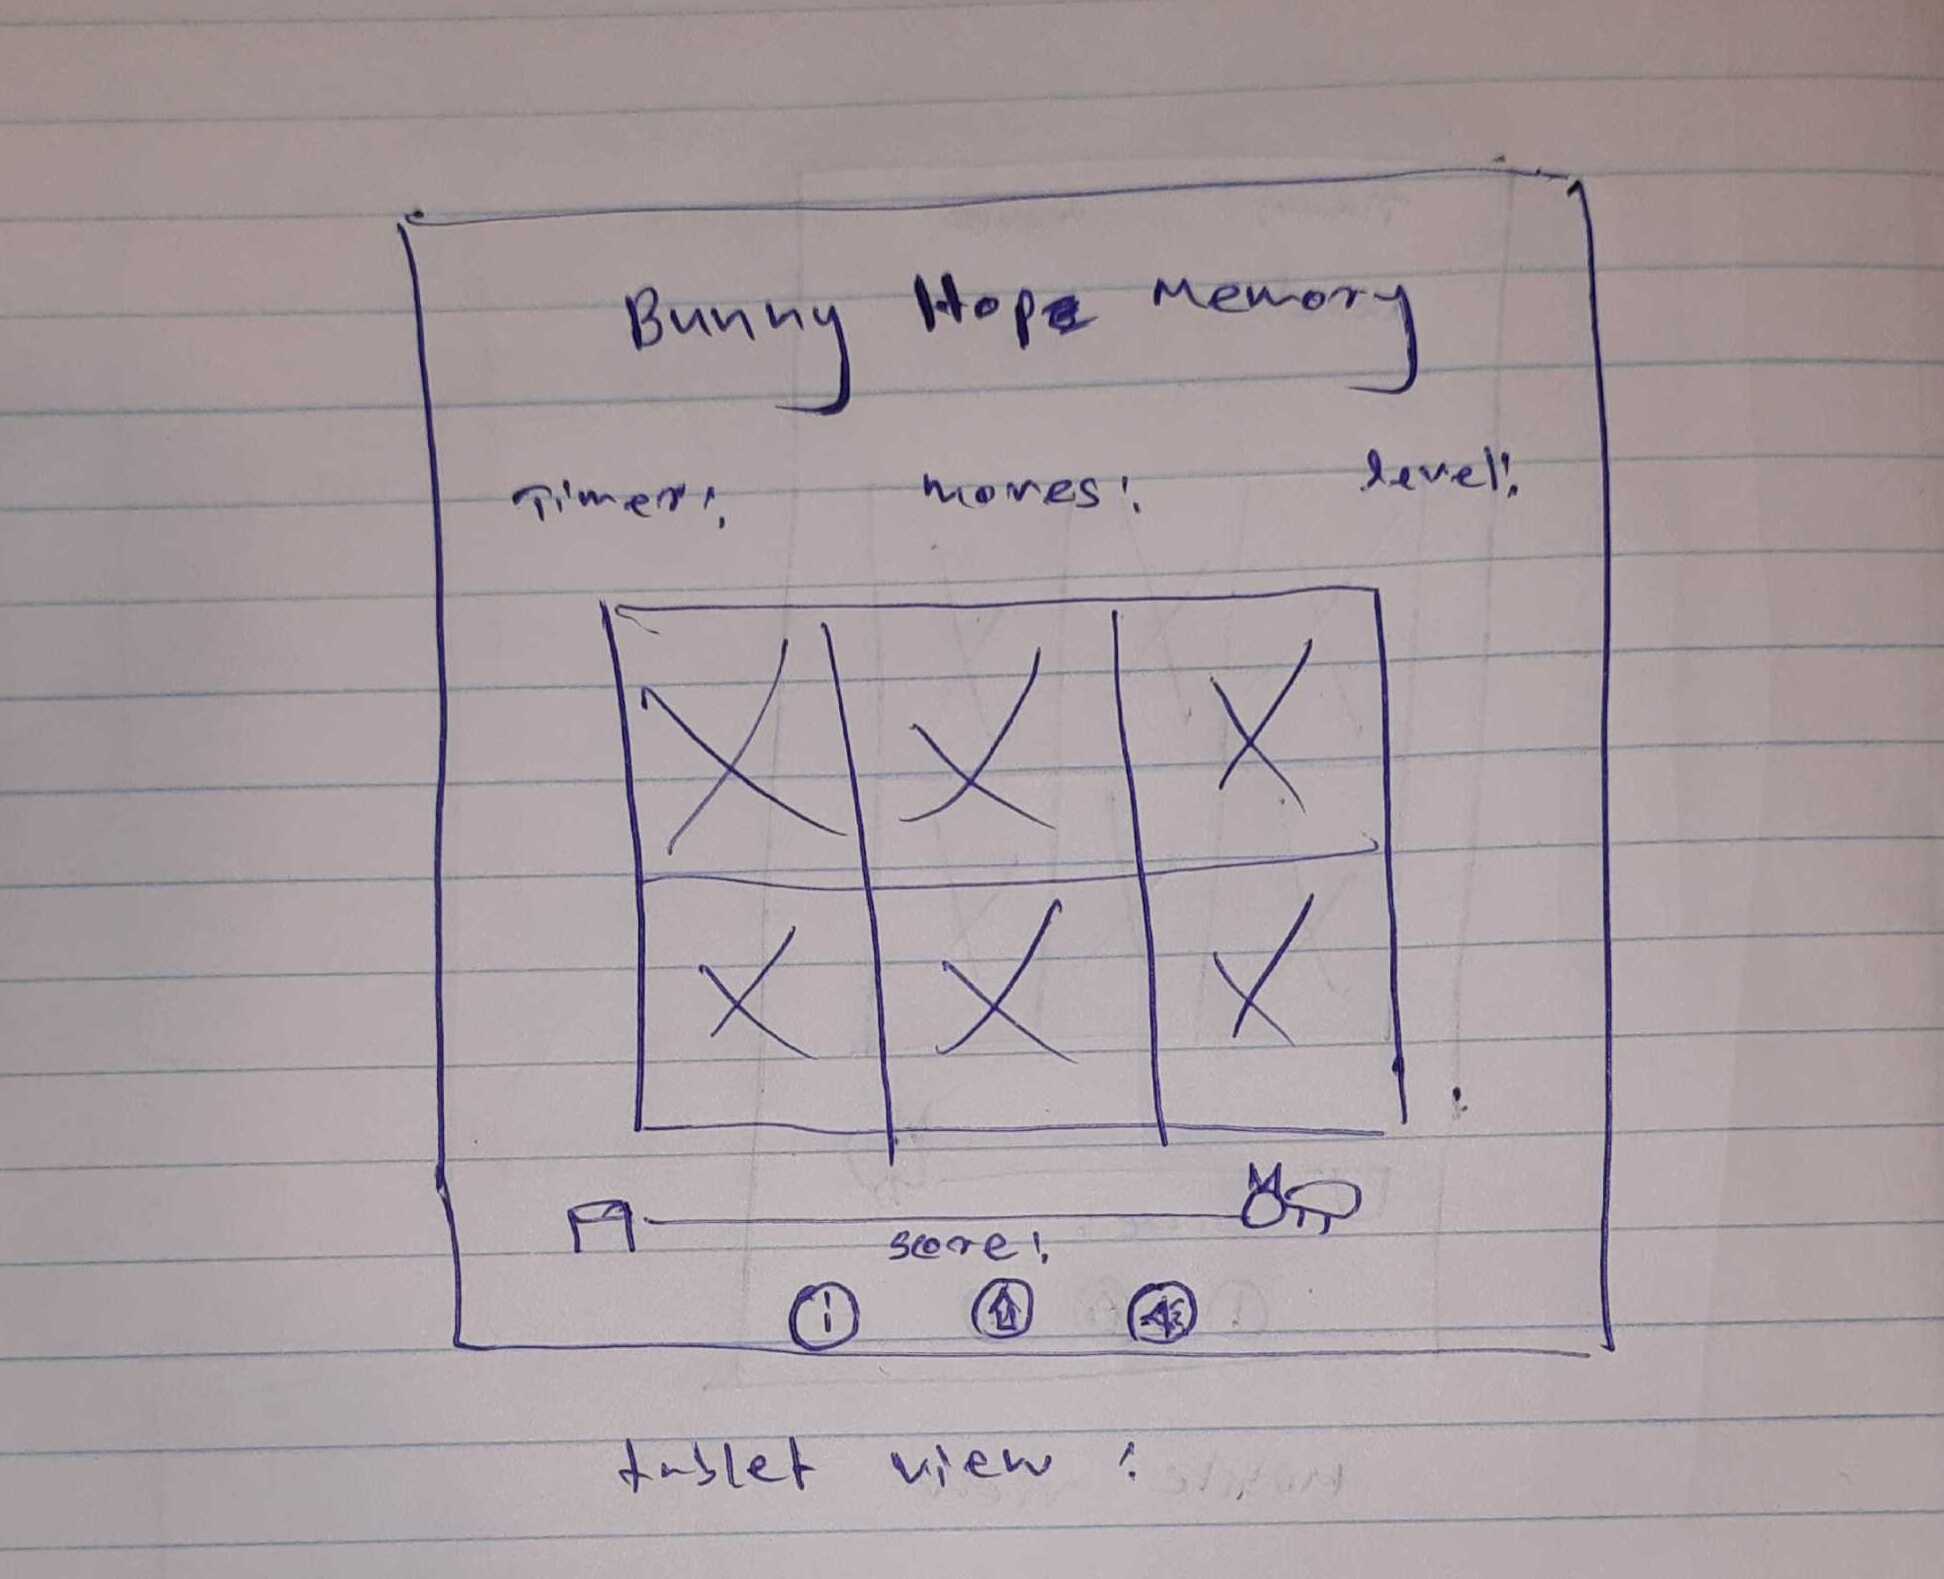 Bunny Hop Memory
Timer:
moves:
level:
score:
i
tablet view :